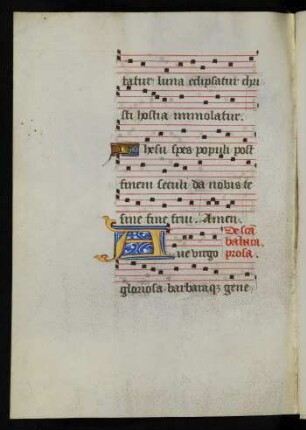 tatur luna eclipsatur chri
sti hostia immolatur.
Ihesu spes populi post
finem seculi da nobis te
sine fine frui. Amen.
De scā
Aue virgo
prosa.
gloriosa barbaraqꝫ gene